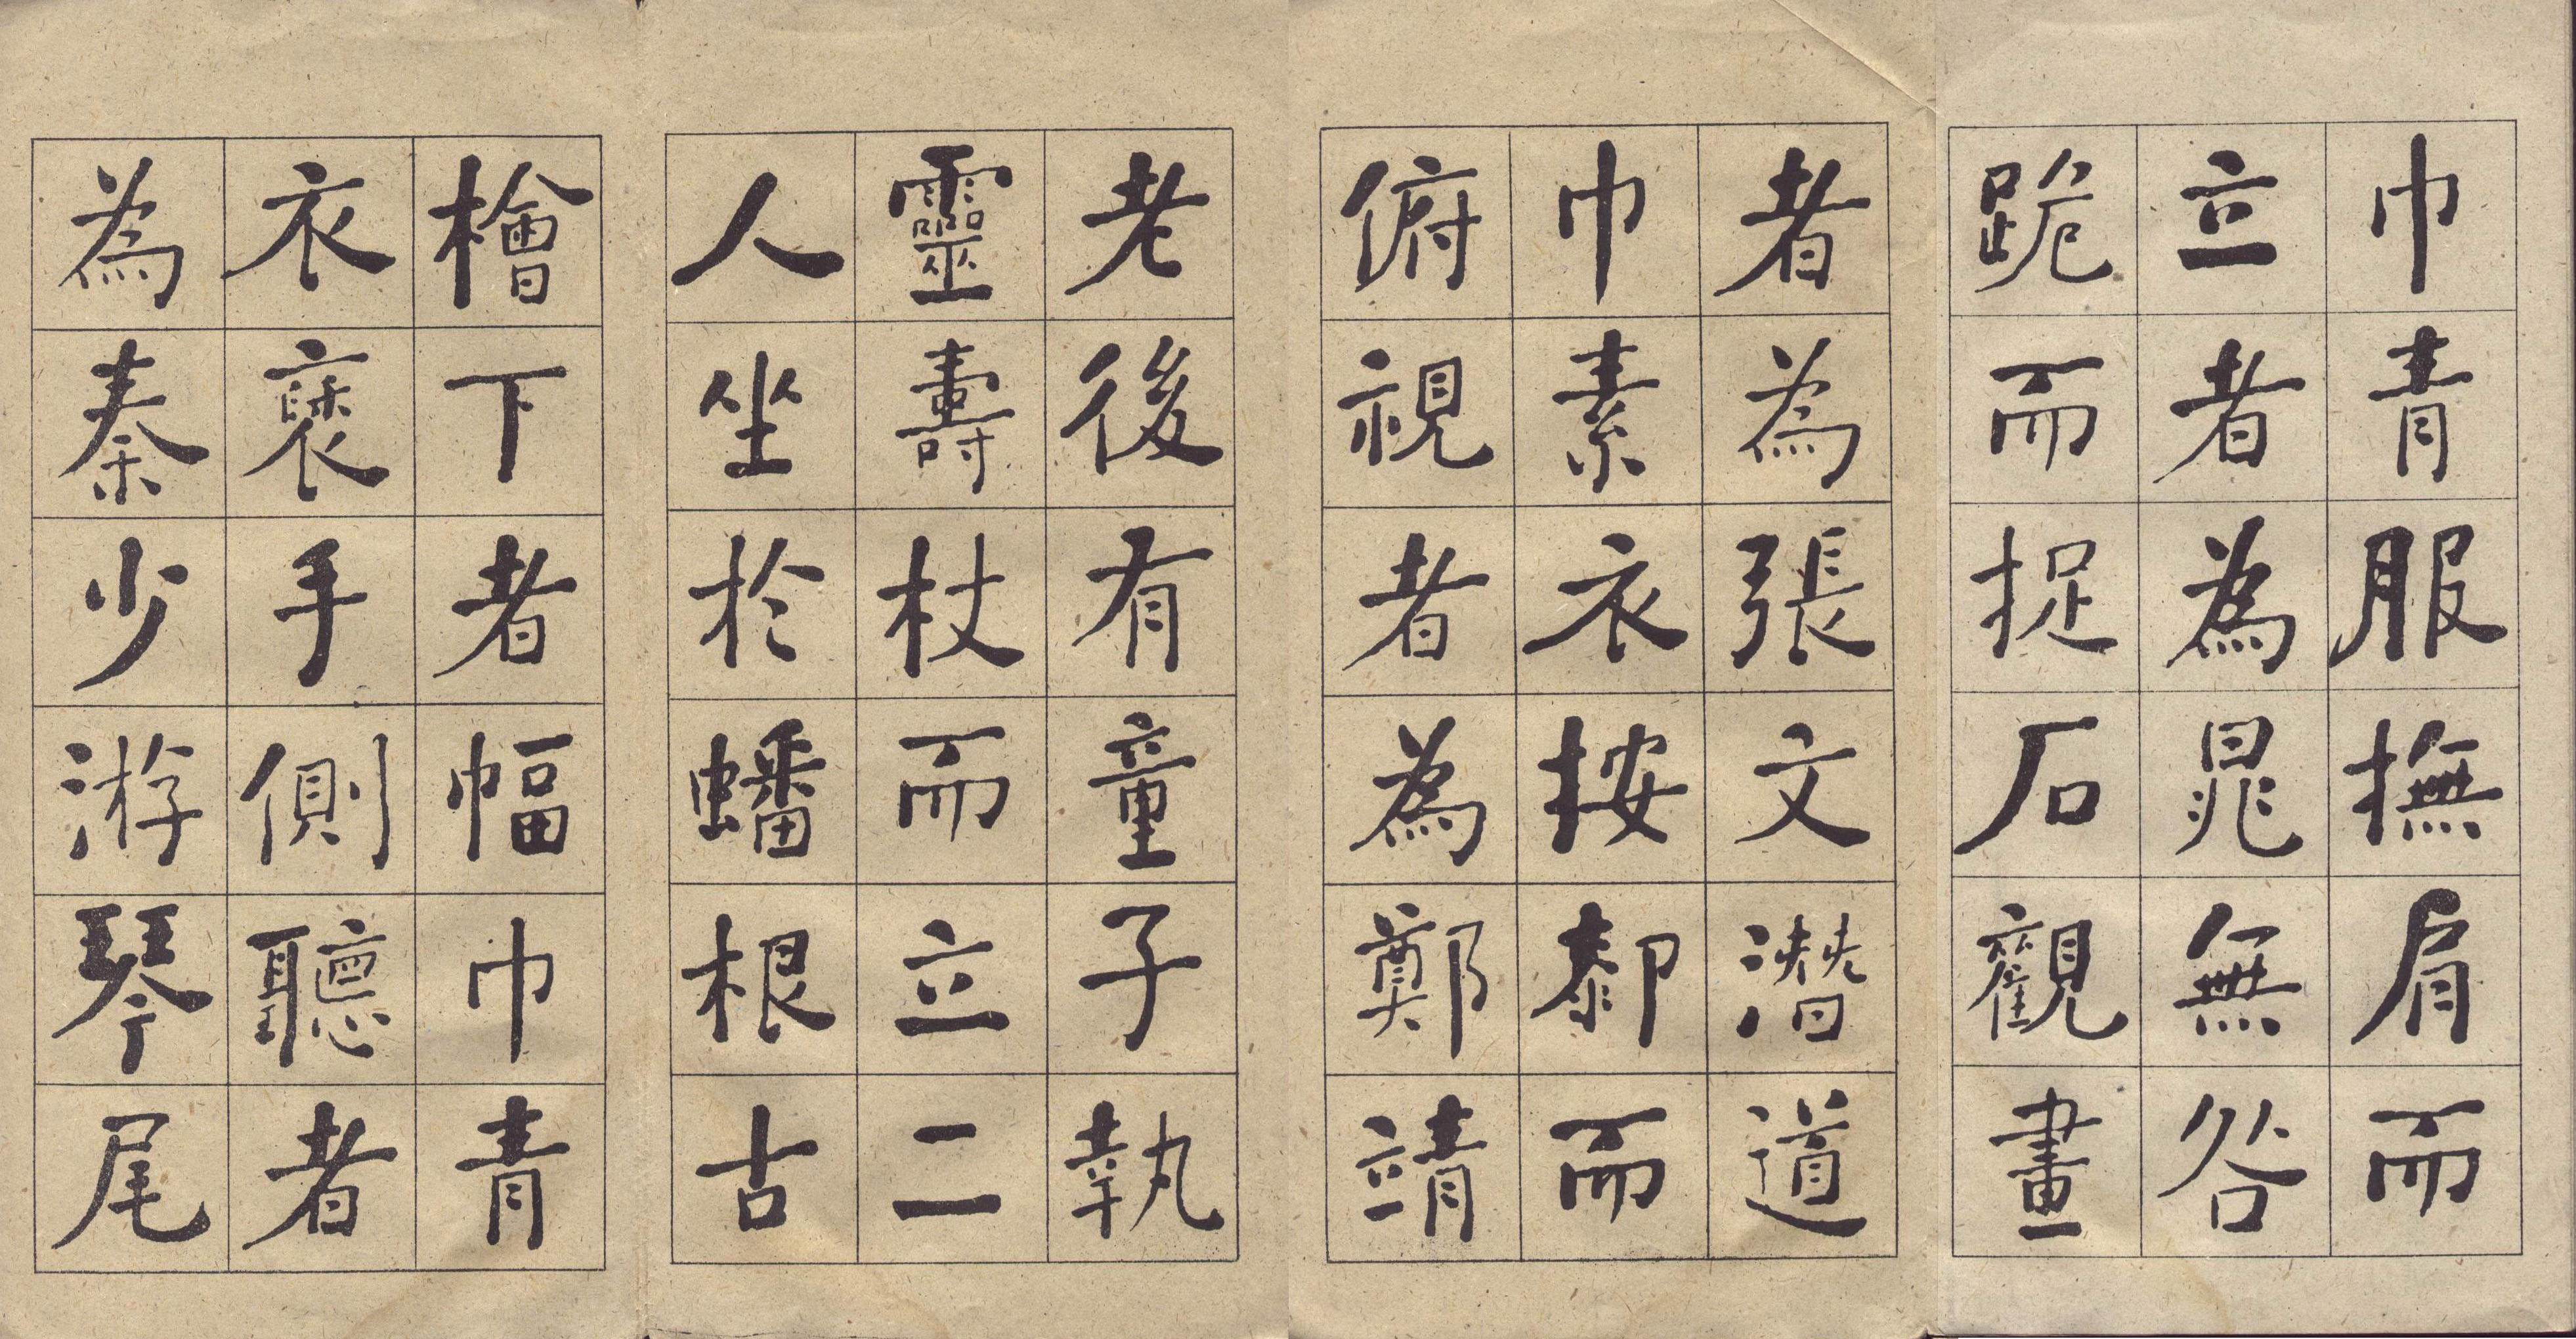 巾青服撫肩而
立者為晁無咎
跪而捉石觀畫
者為張文潛道
巾素衣按厀而
俯視者為鄭靖
老後有童子執
靈壽杖而立二
人坐於蟠根古
檜下者幅巾青
衣褎手側聽者
為秦少游琴尾